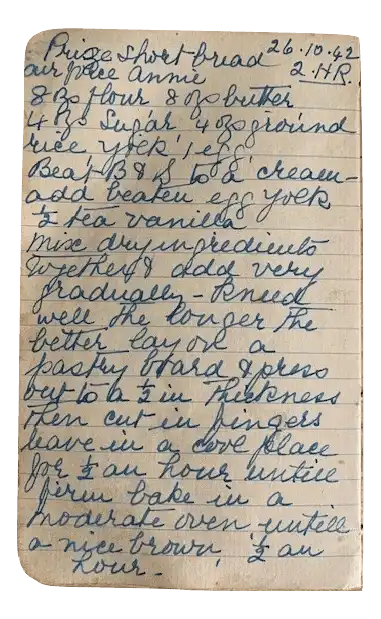 Prize Shortbread 26.10.42
air pice Annie 2.HR.
8 ozs flour 8 ozs butter
4 ozs Sugar 4 ozs ground
rice, yolk 1 egg
Beat B & S to a cream-
add beaten egg yolk
½ tea vanilla
mix dry ingredients
together & add very
gradually - Kneed
well the longer the
better lay on a
pastry board & press
out to a ½ in thickness
then cut in fingers
leave in a cool place
for ½ an hour untill
firm bake in a
moderate oven untill
a nice brown, ½ an
hour -